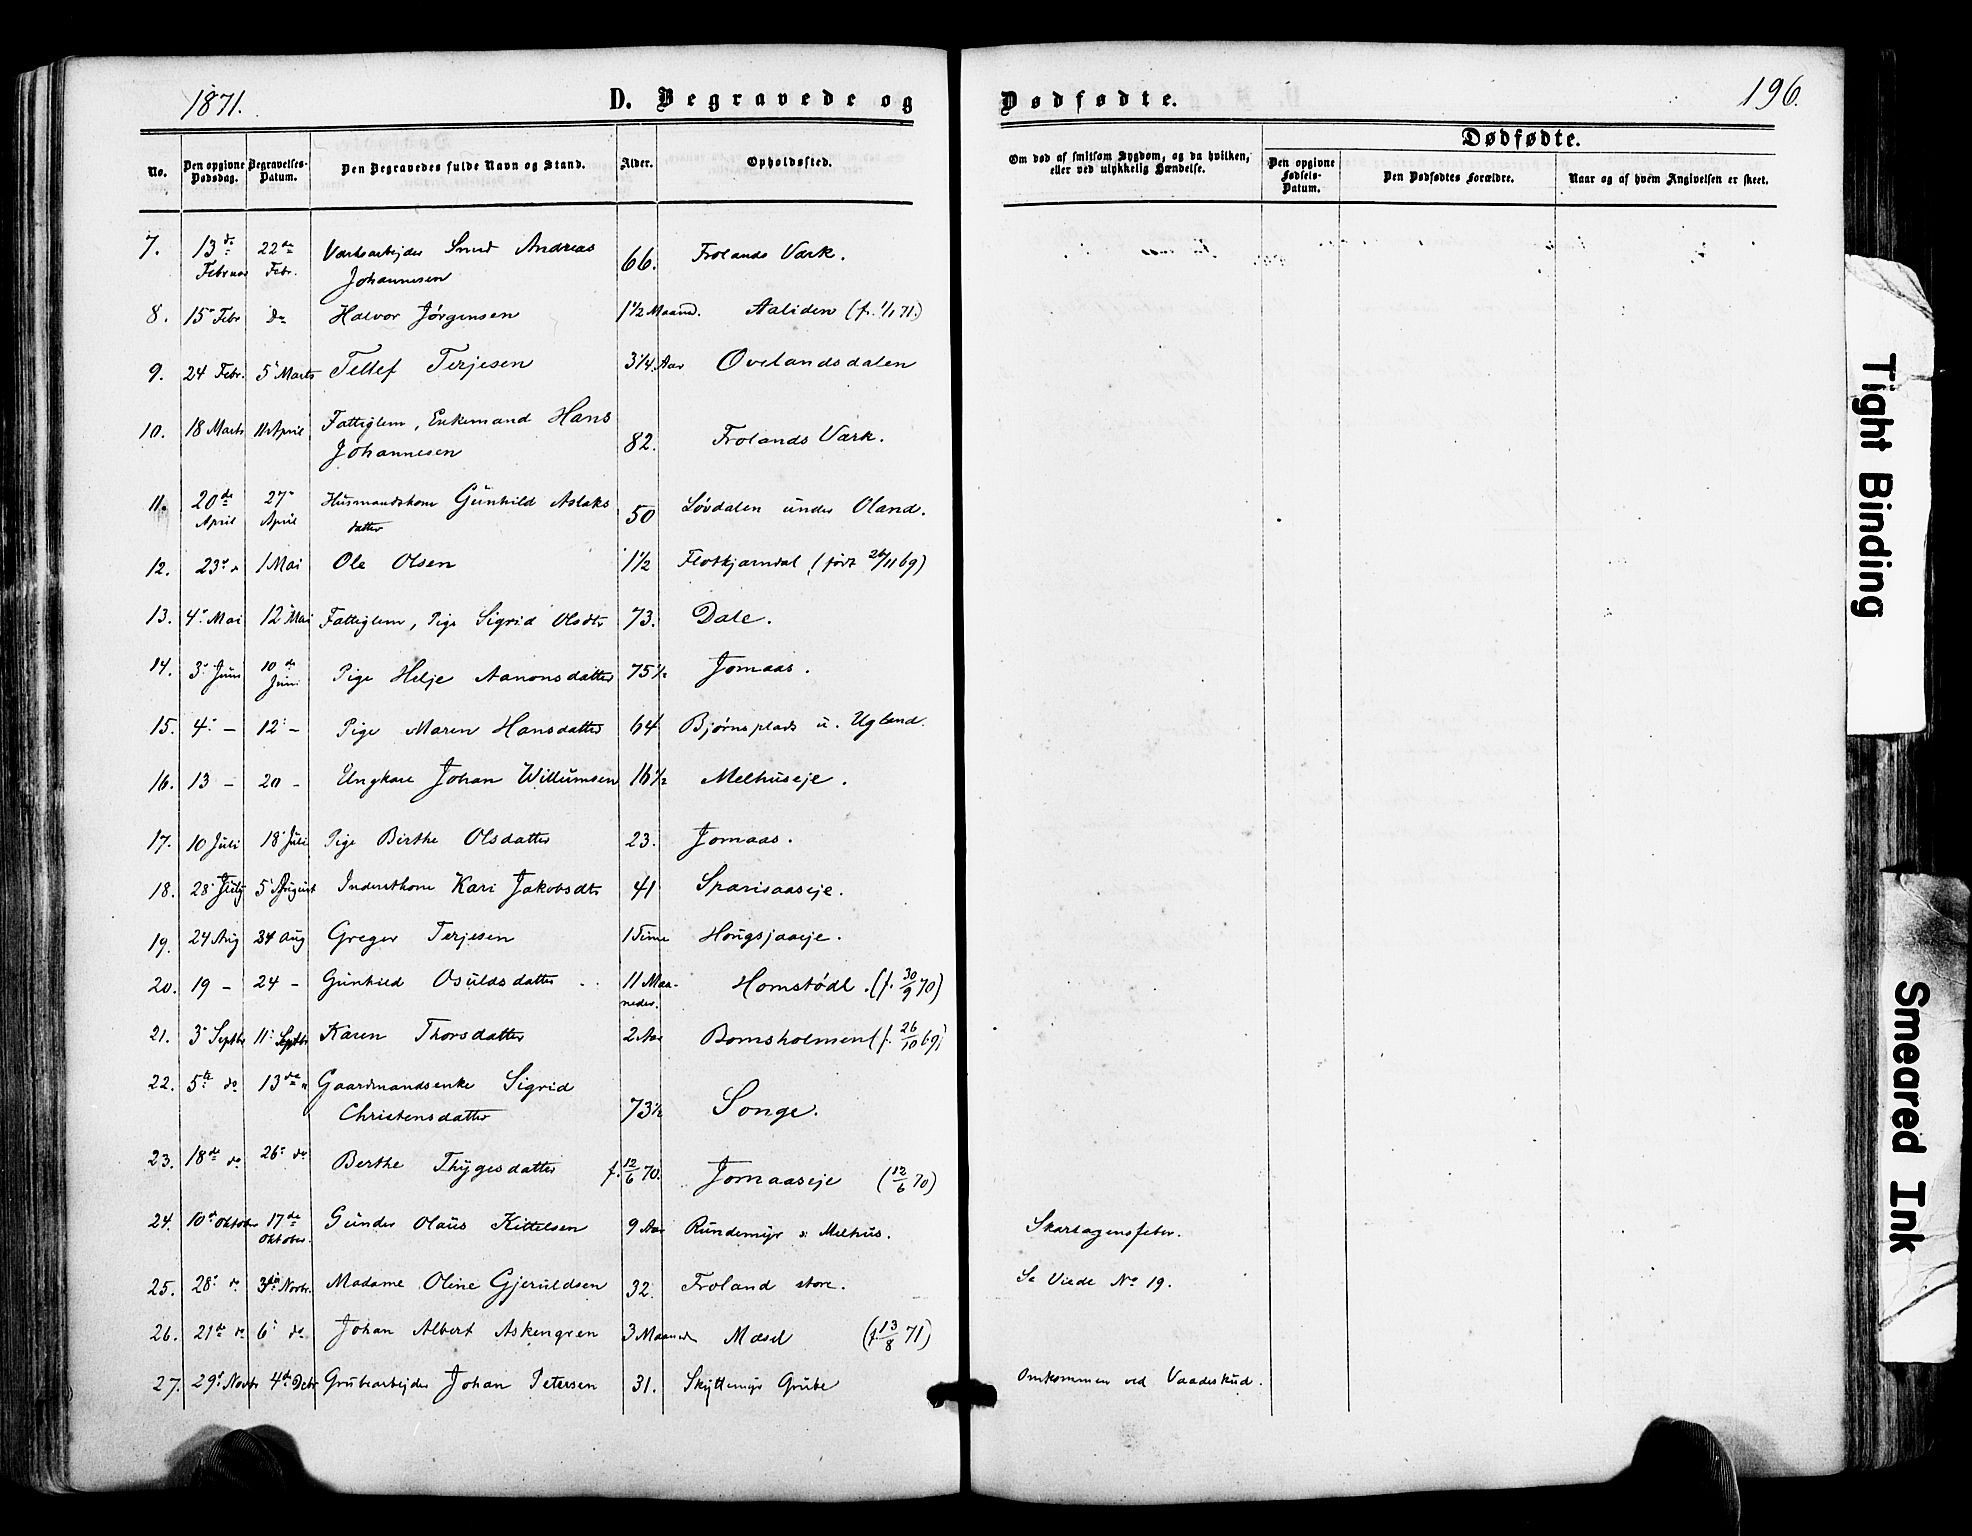 1871.
D. Begravede og Dødfødte.
196.
No.
Den opgivne Dødsdag.
Begravelses-Datum.
Den Begravedes fulde Navn og Stand.
Alder.
Opholdssted.
Om død af smitsom Sygdom, og da hvilken, eller ved ulykkelig Hændelse.
Dødfødte.
Den opgivne Fødsels-Datum.
Den Dødfødtes Forældre.
Naar og af hvem Angivelsen er skeet.
7. 13de Februar 22de Febr. Værksarbejder Smed Andreas Johannesen 66. Frolands Værk.
8. 15 Febr do Halvor Jørgensen 1 1/2 Maaned. Aaliden (f. 1/1 71.)
9. 24 Febr. 5 Marts Tellef Terjesen 3 1/4 Aar Ovelandsdalen
10. 18 Marts 11 April Fattiglem, Enkemand Hans Johannesen 82. Frolands Værk.
11. 20de April 27 April Husmandskone Gunhild Aslaksdatter 50 Løvdalen under Oland.
12. 23 do 1 Mai Ole Olsen 1 1/2 Flotkjærndal (født 26/11 69)
13. 4 Mai 12 Mai Fattiglem, Pige Sigrid Olsdtr 73. Dale.
14. 3 Juni 10de Juni Pige Helje Aanonsdatter 75 1/2 Jomaas.
15. 4 – 12 – Pige Maren Hansdatter 64 Bjørnsplads u. Ugland.
16. 13 – 20 – Ungkare Johan Willumsen 16 1/2 Melhuseje.
17. 10 Juli 18 Juli Pige Birthe Olsdatter 23. Jomaas.
18. 28 July 5 August Inderstkone Kari Jakobsdtr 41 Sparisaaseje.
19. 24 Aug 34 Aug Greger Terjesen 1 Time Hougsjaaeje.
20. 19 – 24 – Gunhild Osuldsdatter 11 Maaneder. Homstødl. (f. 30/9 70)
21. 3 Septbr 11 Septbr Karen Thorsdatter 2 Aar Bomsholmen (f. 26/10 69)
22. 5te do 13de " Gaardmandsenke Sigrid Christensdatter 73 1/2 Songe.
23. 18de do 26 do Berthe Thygesdatter f. 12/6 70. Jomaaseje (12/6 70)
24. 10de Oktober 17de Oktober. Gunder Olaus Kittelsen 9 Aar Rundemyr u. Melhus. Skarlagensfeber.
25. 28 do 3die Novbr. Madame Oline Gjeruldsen 32. Froland store. Se Viede No 19.
26. 21de do 6 do Johan Albert Askengren 3 Maaneder Mæsel (f. 13/8 71)
27. 29 Novbr 4de Debr Grubearbejder Johan Petersen 31. Skyttemyr Grube Omkommen ved Vaadeskud.
Tight Binding
Smeared Ink